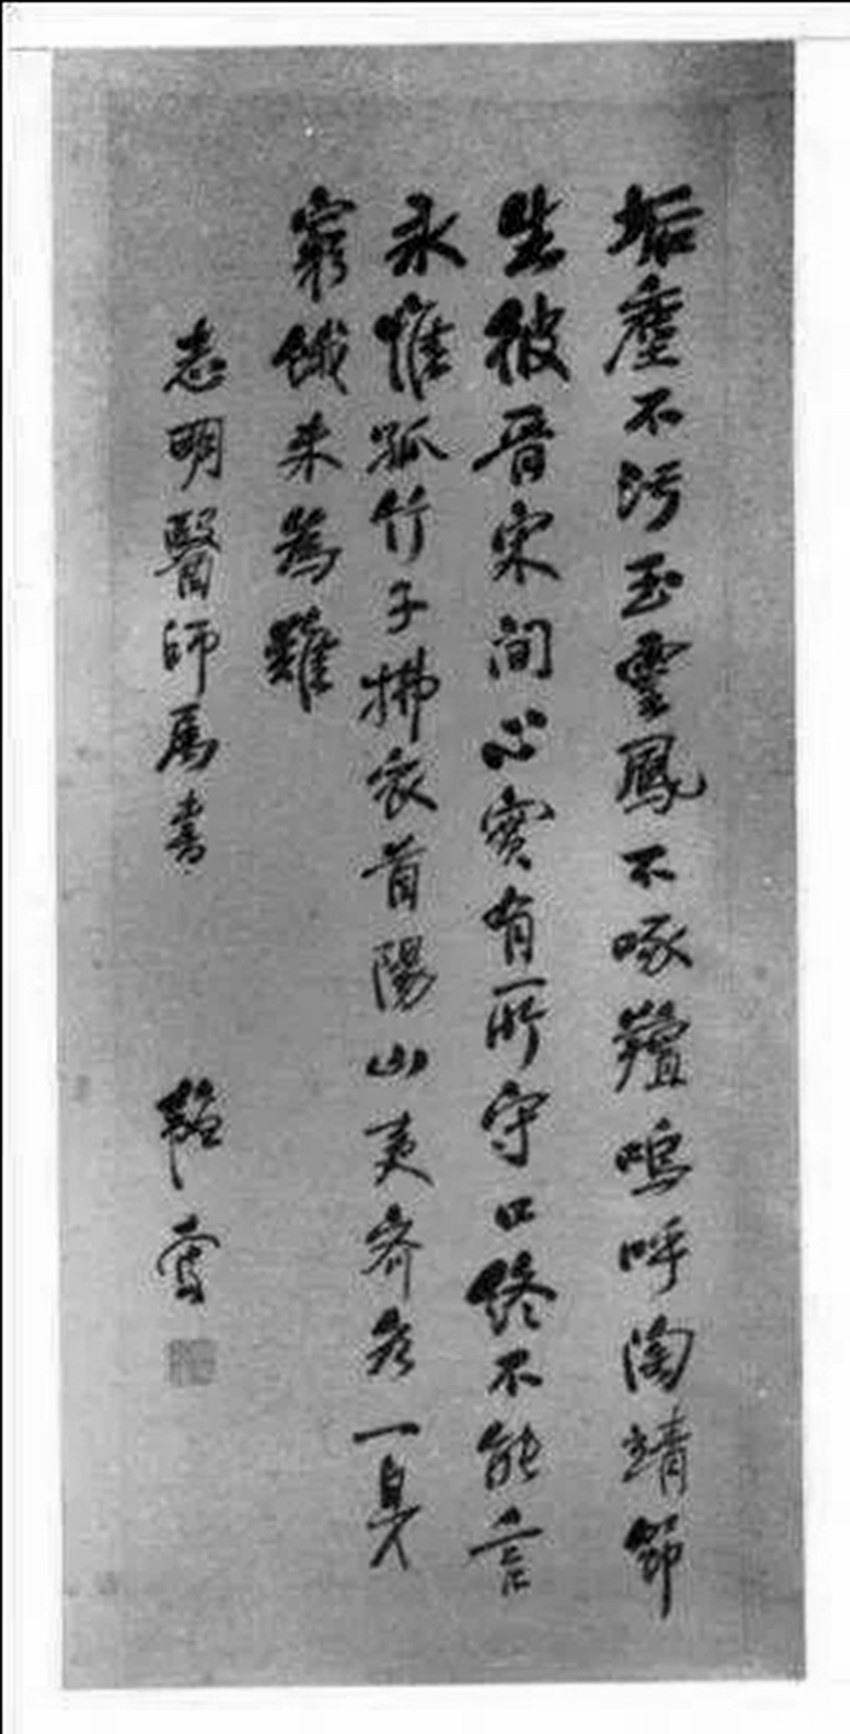 垢塵不污玉靈鳳不啄羶嗚呼陶靖節
生彼晉宋間心實有所守口終不能言
永惟孤竹子拂衣首陽山夷齊各一身
窮餓未為難
志明醫師属書